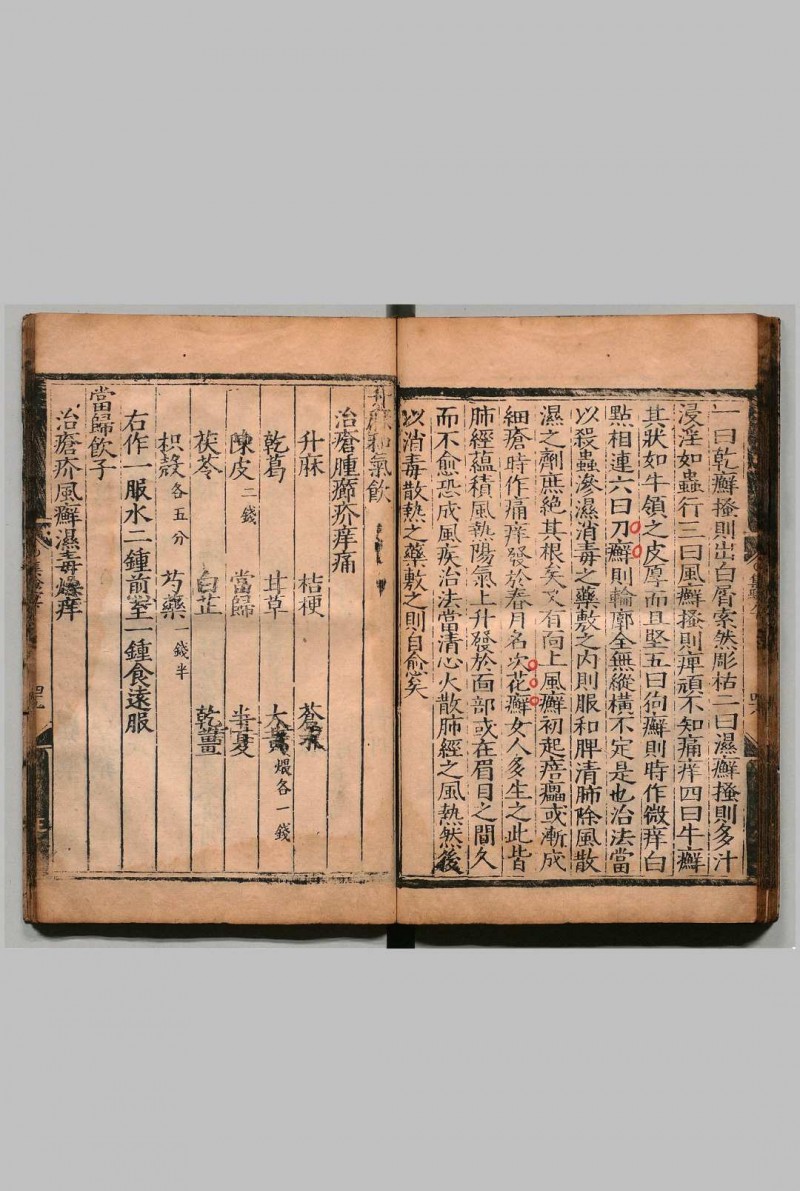 一曰乾癬搔則出白屑索然彫枯二曰濕癬搔則多汁
浸淫如蟲行三曰風癬搔則痹頑不知痛痒四曰牛癬
其狀如牛領之皮厚而且堅五曰狗癬則時作微痒白
點相連六曰刀癬則輪廓全無縱橫不定是也治法當
以殺蟲滲濕消毒之藥敷之内則服和脾清肺除風散
濕之劑庶絶其根矣又有面上風癬初起㾦㿔或漸成
細瘡時作痛痒發於春月名次花癬女人多生之此皆
肺經蘊積風熱陽氣上升發於面部或在眉目之間久
而不愈恐成風疾治法當清心火散肺經之風熱然後
以消毒散熱之藥敷之則自愈矣
升麻和氣飲
治瘡腫癤疥痒痛
升麻 桔梗 蒼朮
乾葛 甘草 大黃煨各一錢
陳皮二錢 當歸 半夏
茯苓 白芷 乾薑
枳殼各五分 芍藥一錢半
右作一服水二鍾煎至一鍾食遠服
當歸飲子
治瘡疥風癬濕毒燥痒